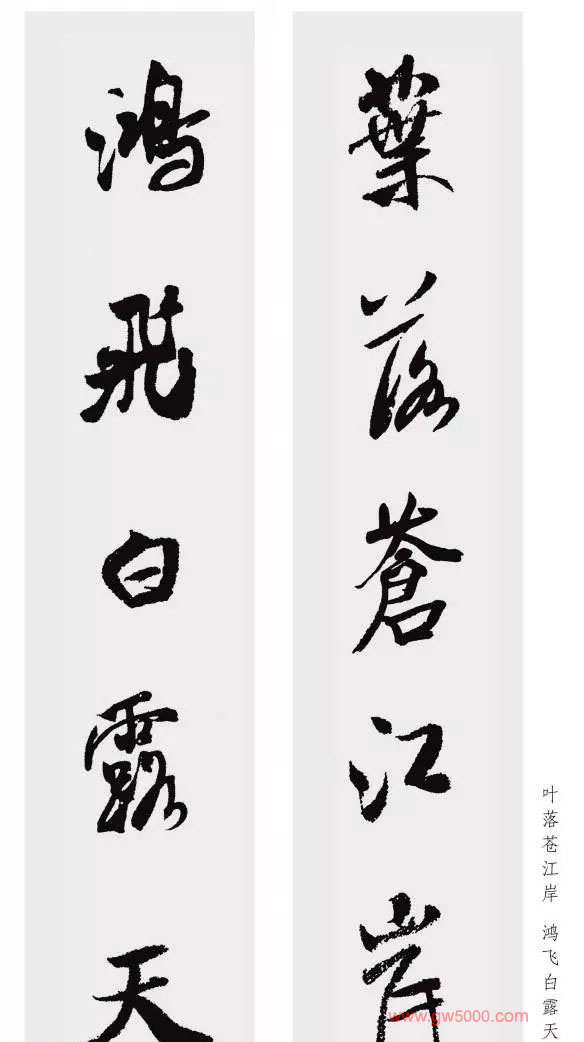 葉落蒼江岸
鴻飛白露天
叶落苍江岸 鸿飞白露天
www.gw5000.com